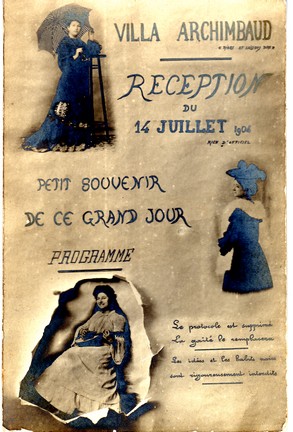 VILLA ARCHIMBAUD
RECEPTION
DU
14 JUILLET
RIEN D'OFFICIEL
PETIT SOUVENIR
DE CE GRAND JOUR
PROGRAMME
Le protocole est supprimé
La gaîté le remplacera
Les idées et les habits noirs
sont rigoureusement interdits